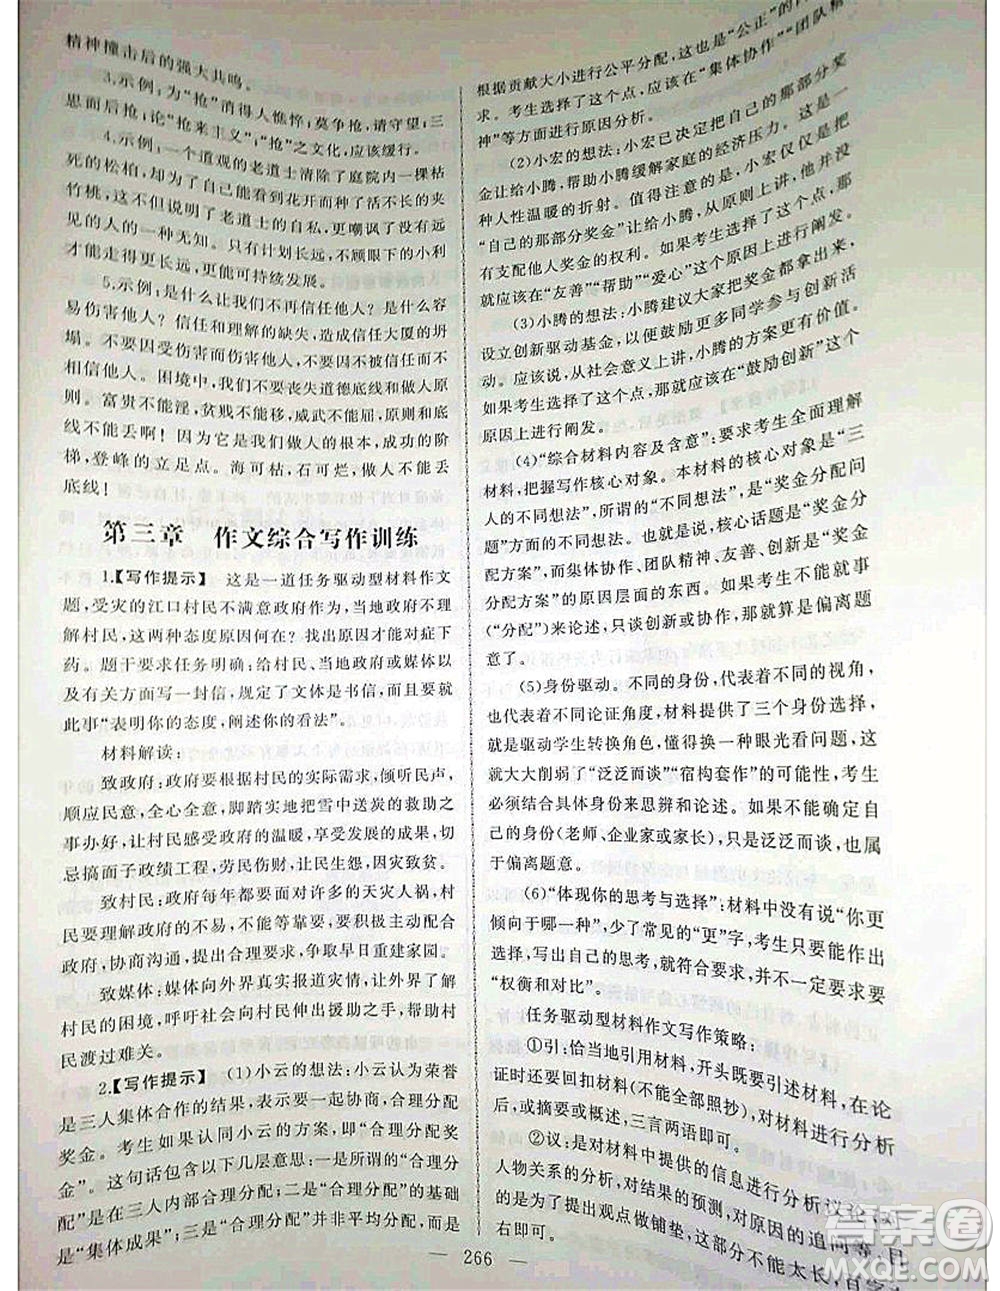 精神撞击后的强大共鸣。
3.示例:为“抢”消得人憔悴;莫争抢,请守望;三
思而后抢;论“抢来主义”;“抢”之文化,应该缓行。
4.示例:一个道观的老道士清除了庭院内一棵枯
死的松柏,只因为自己能看到花开而种了活不长的夹
竹桃,这不但说明了老道士的自私,更嘲讽了没有远
见的人的一种无知。只有计划长远,不顾眼下的小利
才能走得更长远,更能可持续发展。
5.示例:是什么让我们不再信任他人?是什么容
易伤害他人?信任和理解的缺失,造成信任大厦的坍
塌。不要因受伤害而伤害他人,不要因被误解而不
相信他人。困境中,我们不要丧失道德底线和做人原
则。富贵不能淫,贫贱不能移,威武不能屈,原则和信
誉不能丢啊!因为它们是做人的根本,成功的阶
梯,登峰的立足点。海可枯,石可烂,做人不能丢
底线!
第三章 作文综合写作训练
1.【写作提示】 这是一道任务驱动型材料作文
题,受灾的江口村民不满意政府作为,当地政府不理
解村民,这两种态度原因何在?找出原因才能对症下
药。题干要求任务明确:给村民、当地政府或媒体以
及有关方面写一封信,规定了文体是书信,而且要就
此事“表明你的态度,阐述你的看法”。
材料解读:
致政府:政府要根据村民的实际需求,倾听民声,
顺应民意,全心全意,脚踏实地把雪中送炭的救助之
事办好,让村民感受政府的温暖,享受发展的成果,切
忌搞面子政绩工程,劳民伤财,让民生怨,因灾致贫。
致村民:政府每年都要面对许多的天灾人祸,村
民要理解政府的不易,不能等靠要,积极主动配合
政府,协商沟通,提出合理要求,争取早日重建家园。
致媒体:媒体向外界真实报道灾情,客观反映
村民的困境,呼吁社会向村民伸出援助之手,帮助村
民渡过难关。
2.【写作提示】 (1)小云的想法:小云认为荣誉
是三人集体合作的结果,表示要一起协商,合理分配
奖金。考生如果认同小云的方案,即“合理分配奖
金”。这句话包含以下几层意思:一是所谓的“合理分
配”是在三人内部合理分配;二是“合理分配”的基础
是“集体成果”;三是“合理分配”并非平均分配,而是
根据贡献大小进行公平分配,这也是“公正”的
求。考生选择了这个点,应该在“集体协作”“团队精
神”等方面进行原因分析。
(2)小宏的想法:小宏已决定把自己的那部分奖
金让给小腾,帮助小腾缓解家庭的经济压力。这是一
种人性温暖的折射。值得注意的是,小宏仅仅是将
“自己的那部分奖金”让给小腾,从原则上讲,他并没
有支配他人奖金的权利。如果考生选择了这个点,
就应该在“友善”“帮助”“爱心”这个原因上进行阐发。
(3)小腾的想法:小腾建议大家把奖金都拿出来,
设立创新驱动基金,以便鼓励更多同学参与创新活
动。应该说,从社会意义上讲,小腾的方案更有价值。
如果考生选择了这个点,那就应该在“鼓励创新”这个
原因上进行阐发。
(4)“综合材料内容及含意”:要求考生全面理解
材料,把握写作核心对象。本材料的核心对象是“三
人的不同想法”,所谓的“不同想法”,是“奖金分配问
题”方面的不同想法。也就是说,核心话题是“奖金分
配方案”,而集体协作、团队精神、友善、创新是“奖金
分配方案”的原因层面的东西。如果考生不能就事
(“分配”)来论述,只谈创新或协作,那就算是偏离题
意了。
(5)身份驱动。不同的身份,代表着不同的视角,
也代表着不同论证角度,材料提供了三个身份选择,
就是驱动学生转换角色,懂得换一种眼光看问题,这
就大大削弱了“泛泛而谈”“宿构套作”的可能性,考生
必须结合具体身份来思辨和论述。如果不能确定自
己的身份(老师、企业家或家长),只是泛泛而谈,也
属于偏离题意。
(6)“体现你的思考与选择”:材料中没有说“你更
倾向于哪一种”,少了常见的“更”字,考生只要能作出
选择,写出自己的思考,就符合要求,并不一定要求要
“权衡和对比”。
任务驱动型材料作文写作策略:
①引:恰当地引用材料,开头既要引述材料,在论
证时还要回扣材料(不能全部照抄),对材料进行分析
后,或择要,或概述,三言两语即可。
②议:是对材料中提供的信息进行分析议论,对
人物关系的分析,对材料结果的预测,对原因的追问等,目
的是为了提出观点做铺垫,这部分不能太长,百字左
右即可。
266
答案圈